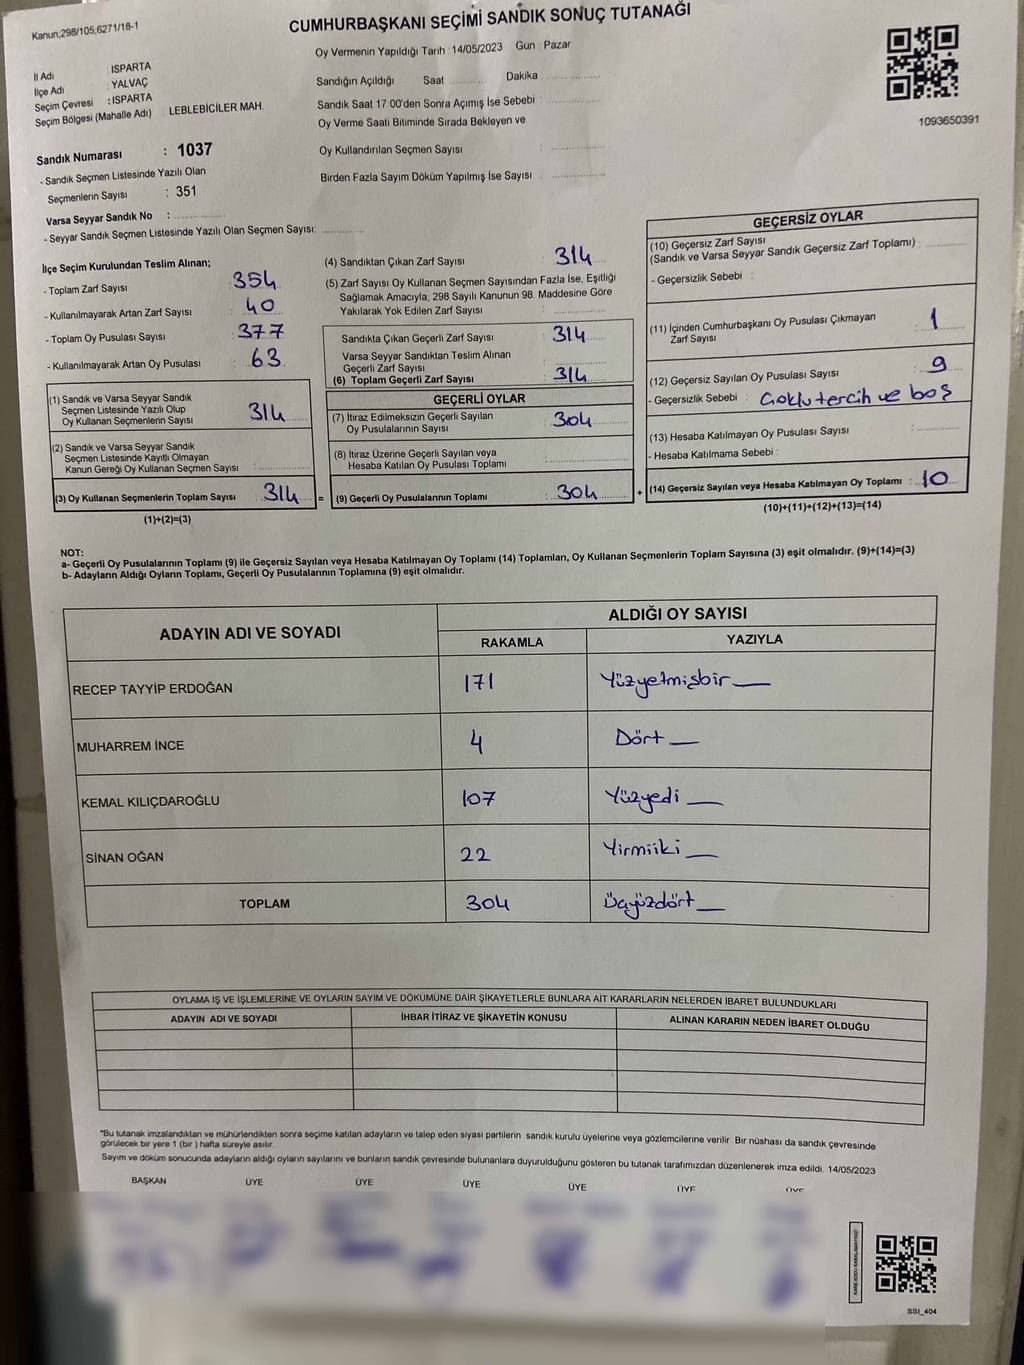 Kanun;298/105;6271/18-1
CUMHURBAŞKANI SEÇİMİ SANDIK SONUÇ TUTANAĞI
Oy Vermenin Yapıldığı Tarih : 14/05/2023 Gün : Pazar
1093650391
İl Adı : ISPARTA
İlçe Adı : YALVAÇ
Seçim Çevresi : ISPARTA
Seçim Bölgesi (Mahalle Adı) LEBLEBİCİLER MAH.
Sandık Numarası : 1037
- Sandık Seçmen Listesinde Yazılı Olan
Seçmenlerin Sayısı : 351
Varsa Seyyar Sandık No :
- Seyyar Sandık Seçmen Listesinde Yazılı Olan Seçmen Sayısı:
Sandığın Açıldığı Saat Dakika
Sandık Saat 17.00'den Sonra Açımış İse Sebebi :
Oy Verme Saati Bitiminde Sırada Bekleyen ve
Oy Kullandırılan Seçmen Sayısı :
Birden Fazla Sayım Döküm Yapılmış İse Sayısı :
İlçe Seçim Kurulundan Teslim Alınan;
- Toplam Zarf Sayısı : 354
- Kullanılmayarak Artan Zarf Sayısı : 40
- Toplam Oy Pusulası Sayısı : 377
- Kullanılmayarak Artan Oy Pusulası : 63
(1) Sandık ve Varsa Seyyar Sandık
Seçmen Listesinde Yazılı Olup
Oy Kullanan Seçmenlerin Sayısı 314
(2) Sandık ve Varsa Seyyar Sandık
Seçmen Listesinde Kayıtlı Olmayan
Kanun Gereği Oy Kullanan Seçmen Sayısı :
(3) Oy Kullanan Seçmenlerin Toplam Sayısı : 314 =
(1)+(2)=(3)
(4) Sandıktan Çıkan Zarf Sayısı : 314
(5) Zarf Sayısı Oy Kullanan Seçmen Sayısından Fazla İse, Eşitliği
Sağlamak Amacıyla; 298 Sayılı Kanunun 98. Maddesine Göre
Yakılarak Yok Edilen Zarf Sayısı :
Sandıkta Çıkan Geçerli Zarf Sayısı : 314
Varsa Seyyar Sandıktan Teslim Alınan
Geçerli Zarf Sayısı :
(6) Toplam Geçerli Zarf Sayısı : 314
GEÇERLİ OYLAR
(7) İtiraz Edilmeksizin Geçerli Sayılan
Oy Pusulalarının Sayısı : 304
(8) İtiraz Üzerine Geçerli Sayılan veya
Hesaba Katılan Oy Pusulası Toplamı :
(9) Geçerli Oy Pusulalarının Toplamı : 304 +
GEÇERSİZ OYLAR
(10) Geçersiz Zarf Sayısı
(Sandık ve Varsa Seyyar Sandık Geçersiz Zarf Toplamı) :
- Geçersizlik Sebebi :
(11) İçinden Cumhurbaşkanı Oy Pusulası Çıkmayan
Zarf Sayısı : 1
(12) Geçersiz Sayılan Oy Pusulası Sayısı : 9
- Geçersizlik Sebebi : Çoklu tercih ve boş
(13) Hesaba Katılmayan Oy Pusulası Sayısı :
- Hesaba Katılmama Sebebi :
(14) Geçersiz Sayılan veya Hesaba Katılmayan Oy Toplamı : 10
(10)+(11)+(12)+(13)=(14)
NOT:
a- Geçerli Oy Pusulalarının Toplamı (9) ile Geçersiz Sayılan veya Hesaba Katılmayan Oy Toplamı (14) Toplamları, Oy Kullanan Seçmenlerin Toplam Sayısına (3) eşit olmalıdır. (9)+(14)=(3)
b- Adayların Aldığı Oyların Toplamı, Geçerli Oy Pusulalarının Toplamına (9) eşit olmalıdır.
ADAYIN ADI VE SOYADI
ALDIĞI OY SAYISI
RAKAMLA YAZIYLA
RECEP TAYYİP ERDOĞAN 171 Yüzyetmişbir
MUHARREM İNCE 4 Dört
KEMAL KILIÇDAROĞLU 107 Yüzyedi
SİNAN OĞAN 22 Yirmiiki
TOPLAM 304 Üçyüzdört
OYLAMA İŞ VE İŞLEMLERİNE VE OYLARIN SAYIM VE DÖKÜMÜNE DAİR ŞİKAYETLERLE BUNLARA AİT KARARLARIN NELERDEN İBARET BULUNDUKLARI
ADAYIN ADI VE SOYADI İHBAR İTİRAZ VE ŞİKAYETİN KONUSU ALINAN KARARIN NEDEN İBARET OLDUĞU
*Bu tutanak imzalandıktan ve mühürlendikten sonra seçime katılan adayların ve talep eden siyasi partilerin sandık kurulu üyelerine veya gözlemcilerine verilir. Bir nüshası da sandık çevresinde
görülecek bir yere 1 (bir ) hafta süreyle asılır.
Sayım ve döküm sonucunda adayların aldığı oyların sayılarını ve bunların sandık çevresinde bulunanlara duyurulduğunu gösteren bu tutanak tarafımızdan düzenlenerek imza edildi. 14/05/2023
BAŞKAN ÜYE ÜYE ÜYE ÜYE ÜYE ÜYE
SSI_404